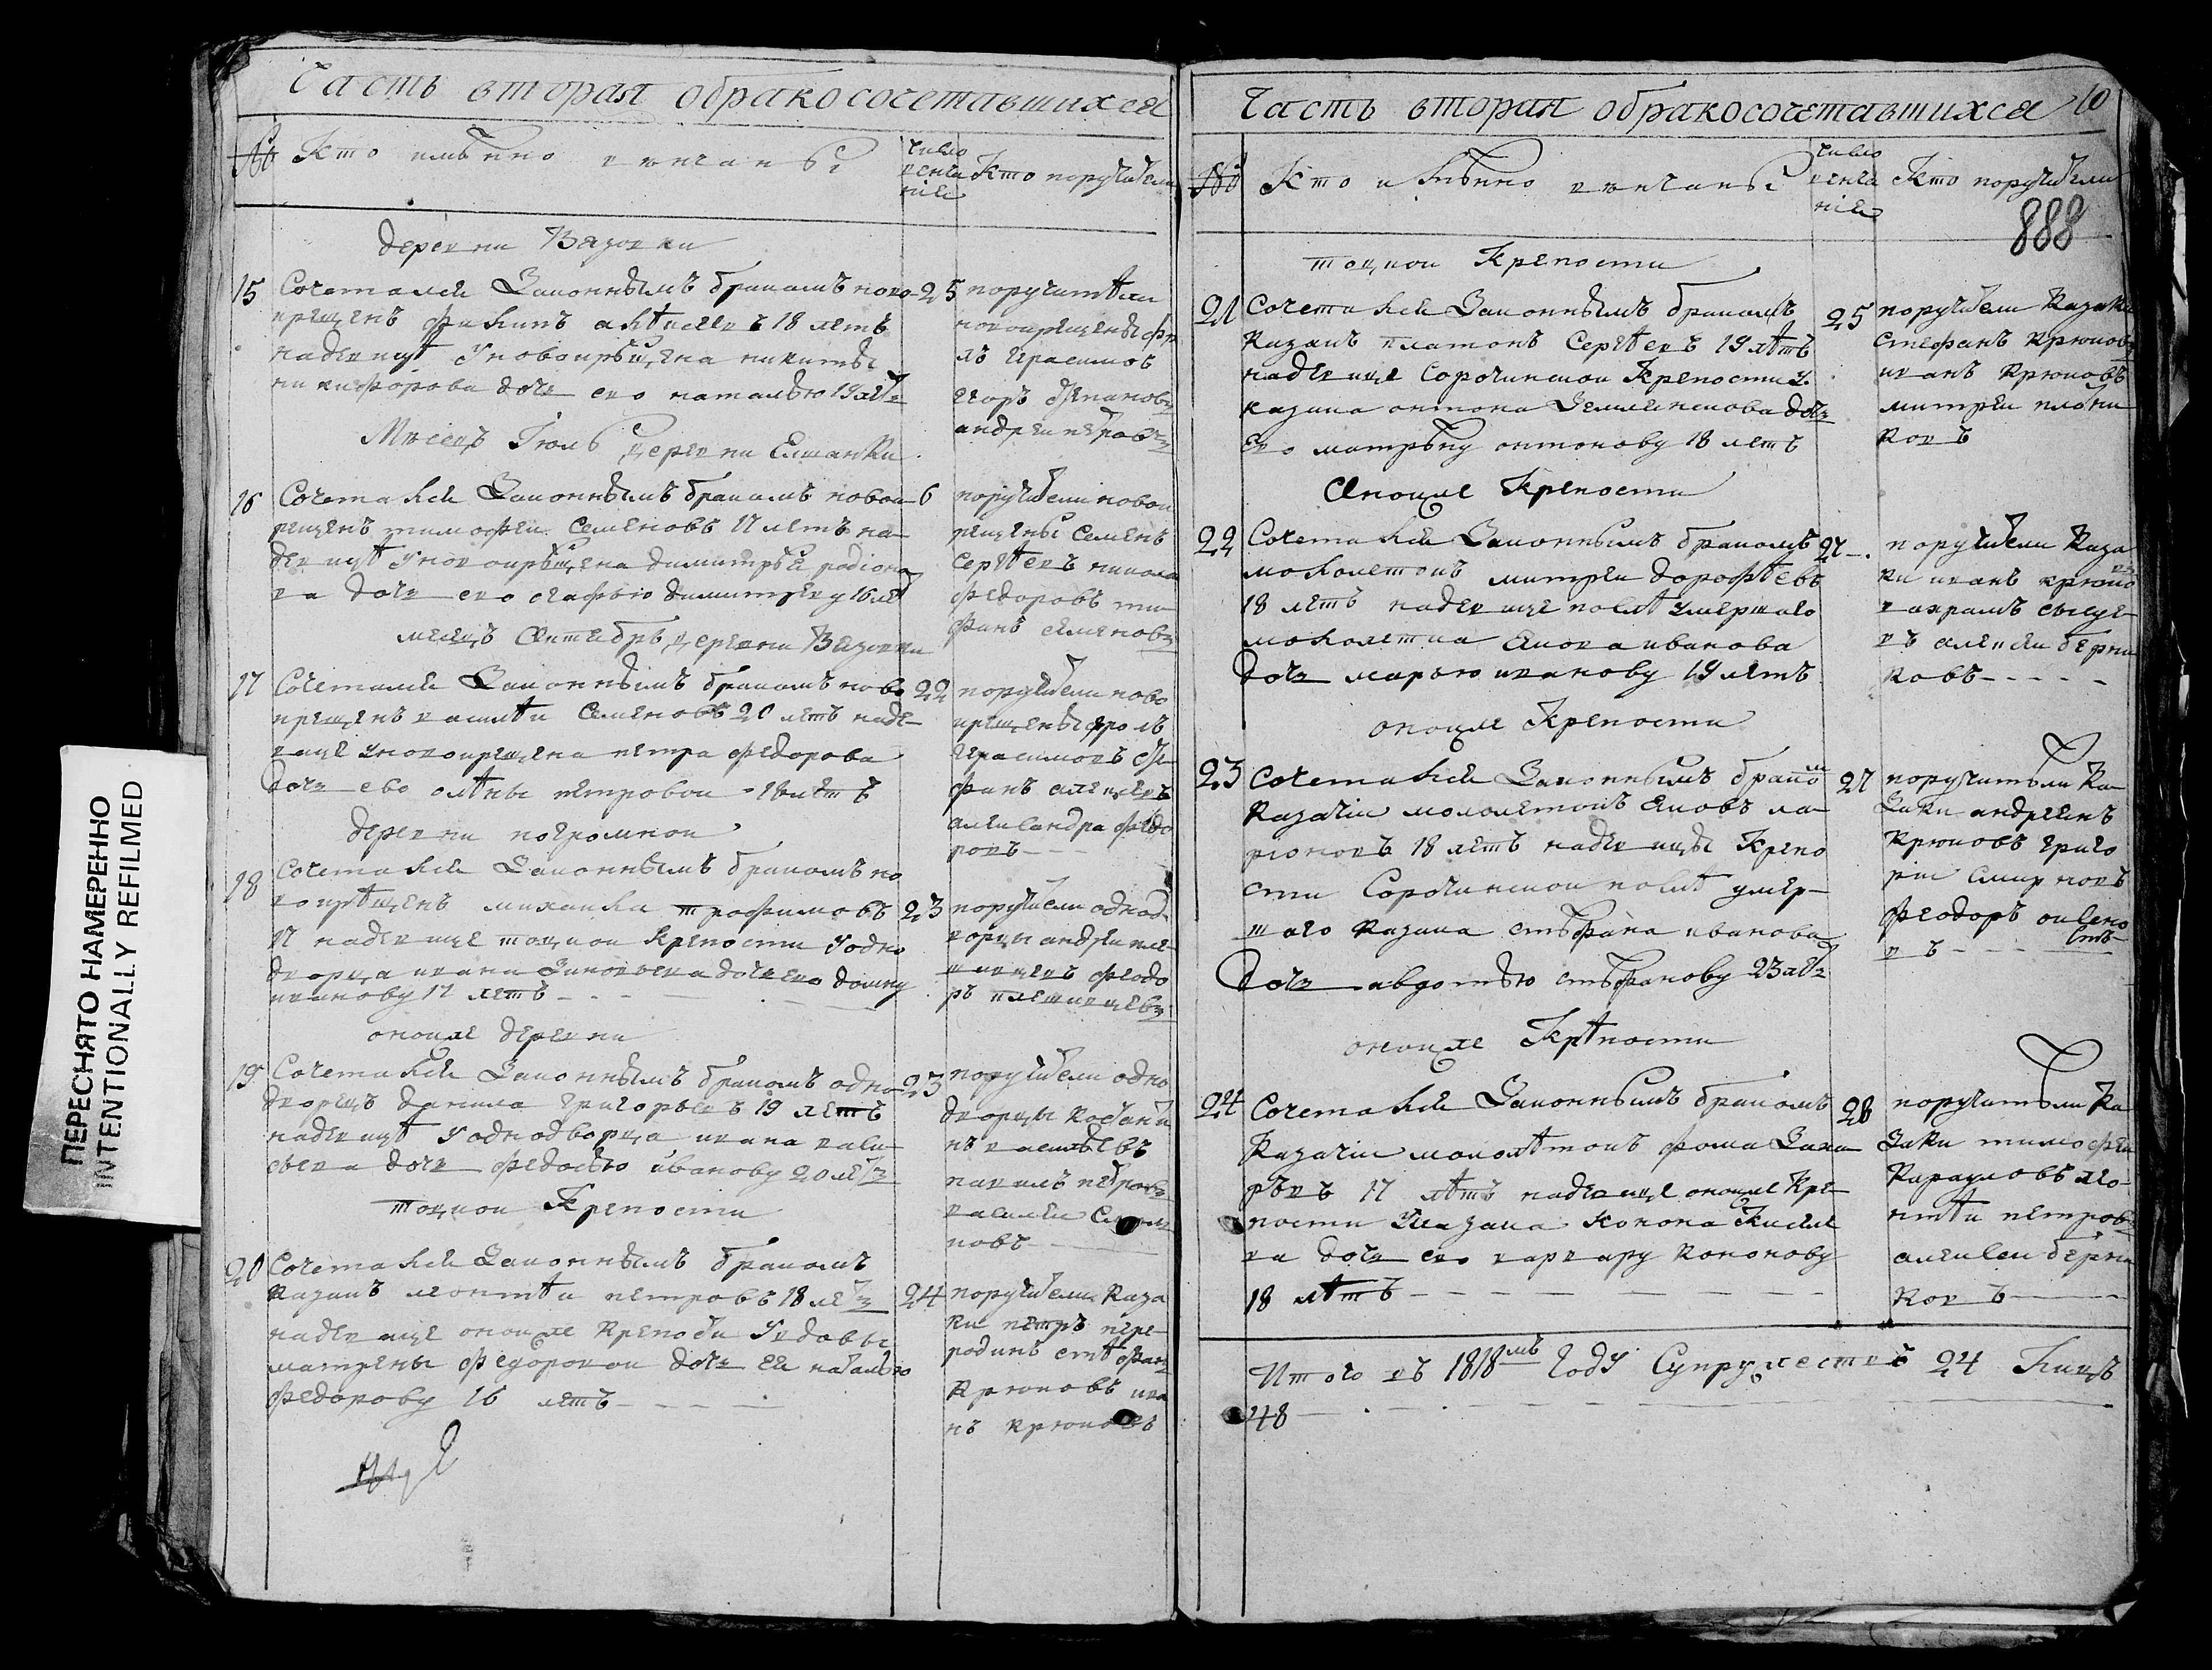 Часть вторая обракосочетавшихся
№ Кто имѣнно венчаны
число венчанiя
Кто поручители
деревни Вязовки
15 Сочетался Законнымъ бракомъ ново-
крещенъ Филипъ Алѣксеевъ 18 летъ
на девицѣ у новокрѣщена никиты
никифорова дочь ево наталью 19 летъ
25 поручитѣли
новокрещены фро
лъ герасимовъ
егоръ степановъ
андреи петровъ
Месецъ Июль деревни Елшанки
16 Сочетался Законнымъ бракомъ новок
рещенъ тимофеи Семеновъ 17 летъ на
девицѣ у новокрѣщена димитрея родионо
ва дочь ево агафью димитреву 16 лет
6 поручители новок
рещены Семенъ
Сергѣевъ никола
федоровъ
семеновъ
месецъ Сентебрь деревни Вязовки
17 Сочетался Законнымъ бракомъ ново
крещенъ василѣи Семеновъ 20 летъ наде
вице у новокрещена петра федорова
дочь ево олѣны петровои 18 летъ
22 поручители ново
крещены фролъ
герасимовъ сте
фанъ алексеевъ
александра федо
ровъ
деревни погромнои
18 Сочетался Законнымъ бракомъ но
вокрѣщенъ михаила трофимовъ
17 надевице тоцкои крепости у одно
дворца ивана Зиновьева дочь ево домну
иванову 17 летъ
23 поручители однод
ворцы андреи пле
шивцевъ феодо
ръ плешивцевъ
оноиже деревни
19 Сочетался Законнымъ бракомъ одно
дворецъ данила григорьевъ 19 летъ
надевицѣ у однодворца ивана васи
льева дочь федосью иванову 20 летъ
23 поручители одно
дворцы
василевъ
павилъ петровъ
василеи
новъ
тоцкои Крепости
20 Сочетался Законнымъ бракомъ
казакъ леонтѣи петровъ 18 летъ
надевице оноиже крепости у вдовы
матрены федоровои дочь ее наталью
федорову 16 летъ
24 поручители каза
ки петръ пере
родинъ стѣфанъ
Крюковъ ива
нъ крюковъ
Часть вторая обракосочетавшихся 10
№ Кто имѣнно венчаны
число венчанiя
Кто поручители
888
тоцкои Крепости
21 Сочетался Законнымъ бракомъ
казакъ платонъ Сергѣевъ 19 лѣтъ
надевице Сорочинскои Крепости у
казака антона Землянскова дочь
ево матрѣну антонову 18 летъ
25 поручители Казаки
стефанъ крюковъ
иванъ крюковъ
митреи плотни
ковъ
Оноиже Крепости
22 Сочетался Законнымъ бракомъ
малолетокъ митреи дорофѣевъ
18 летъ надевице послѣ умершаго
малолетка Якова иванова
дочь марью иванову 19 летъ
27 поручители Каза
ки иванъ крюковъ
алексеи берни
ковъ
оноиже Крепости
23 Сочетался Законнымъ бракомъ
Казачiи малолетокъ Яковъ ла
рионовъ 18 летъ надевицы Крепо
сти Сорочинскои послѣ умер
шаго казака стефана иванова
дочь авдотью стѣфанову 23 летъ
27 поручитѣли Ка
заки андреянъ
Крюковъ григо
реи смирновъ
феодоръ
оноиже Крѣпости
24 Сочетался Законнымъ бракомъ
Казачiи малолѣтокъ фома Заха
ръвъ 17 лѣтъ надевице оноиже Кре
пости у казака Конона Киселе
ва дочь ево варвару кононову
18 лѣтъ
28 поручитѣли Ка
заки тимофеи
Карауловъ лео
нтѣи петровъ
алексеи берни
ковъ
Итого въ 1818мъ Году Супружествъ 24 лицъ
48
ПЕРЕСНЯТО НАМЕРЕННО
INTENTIONALLY REFILMED